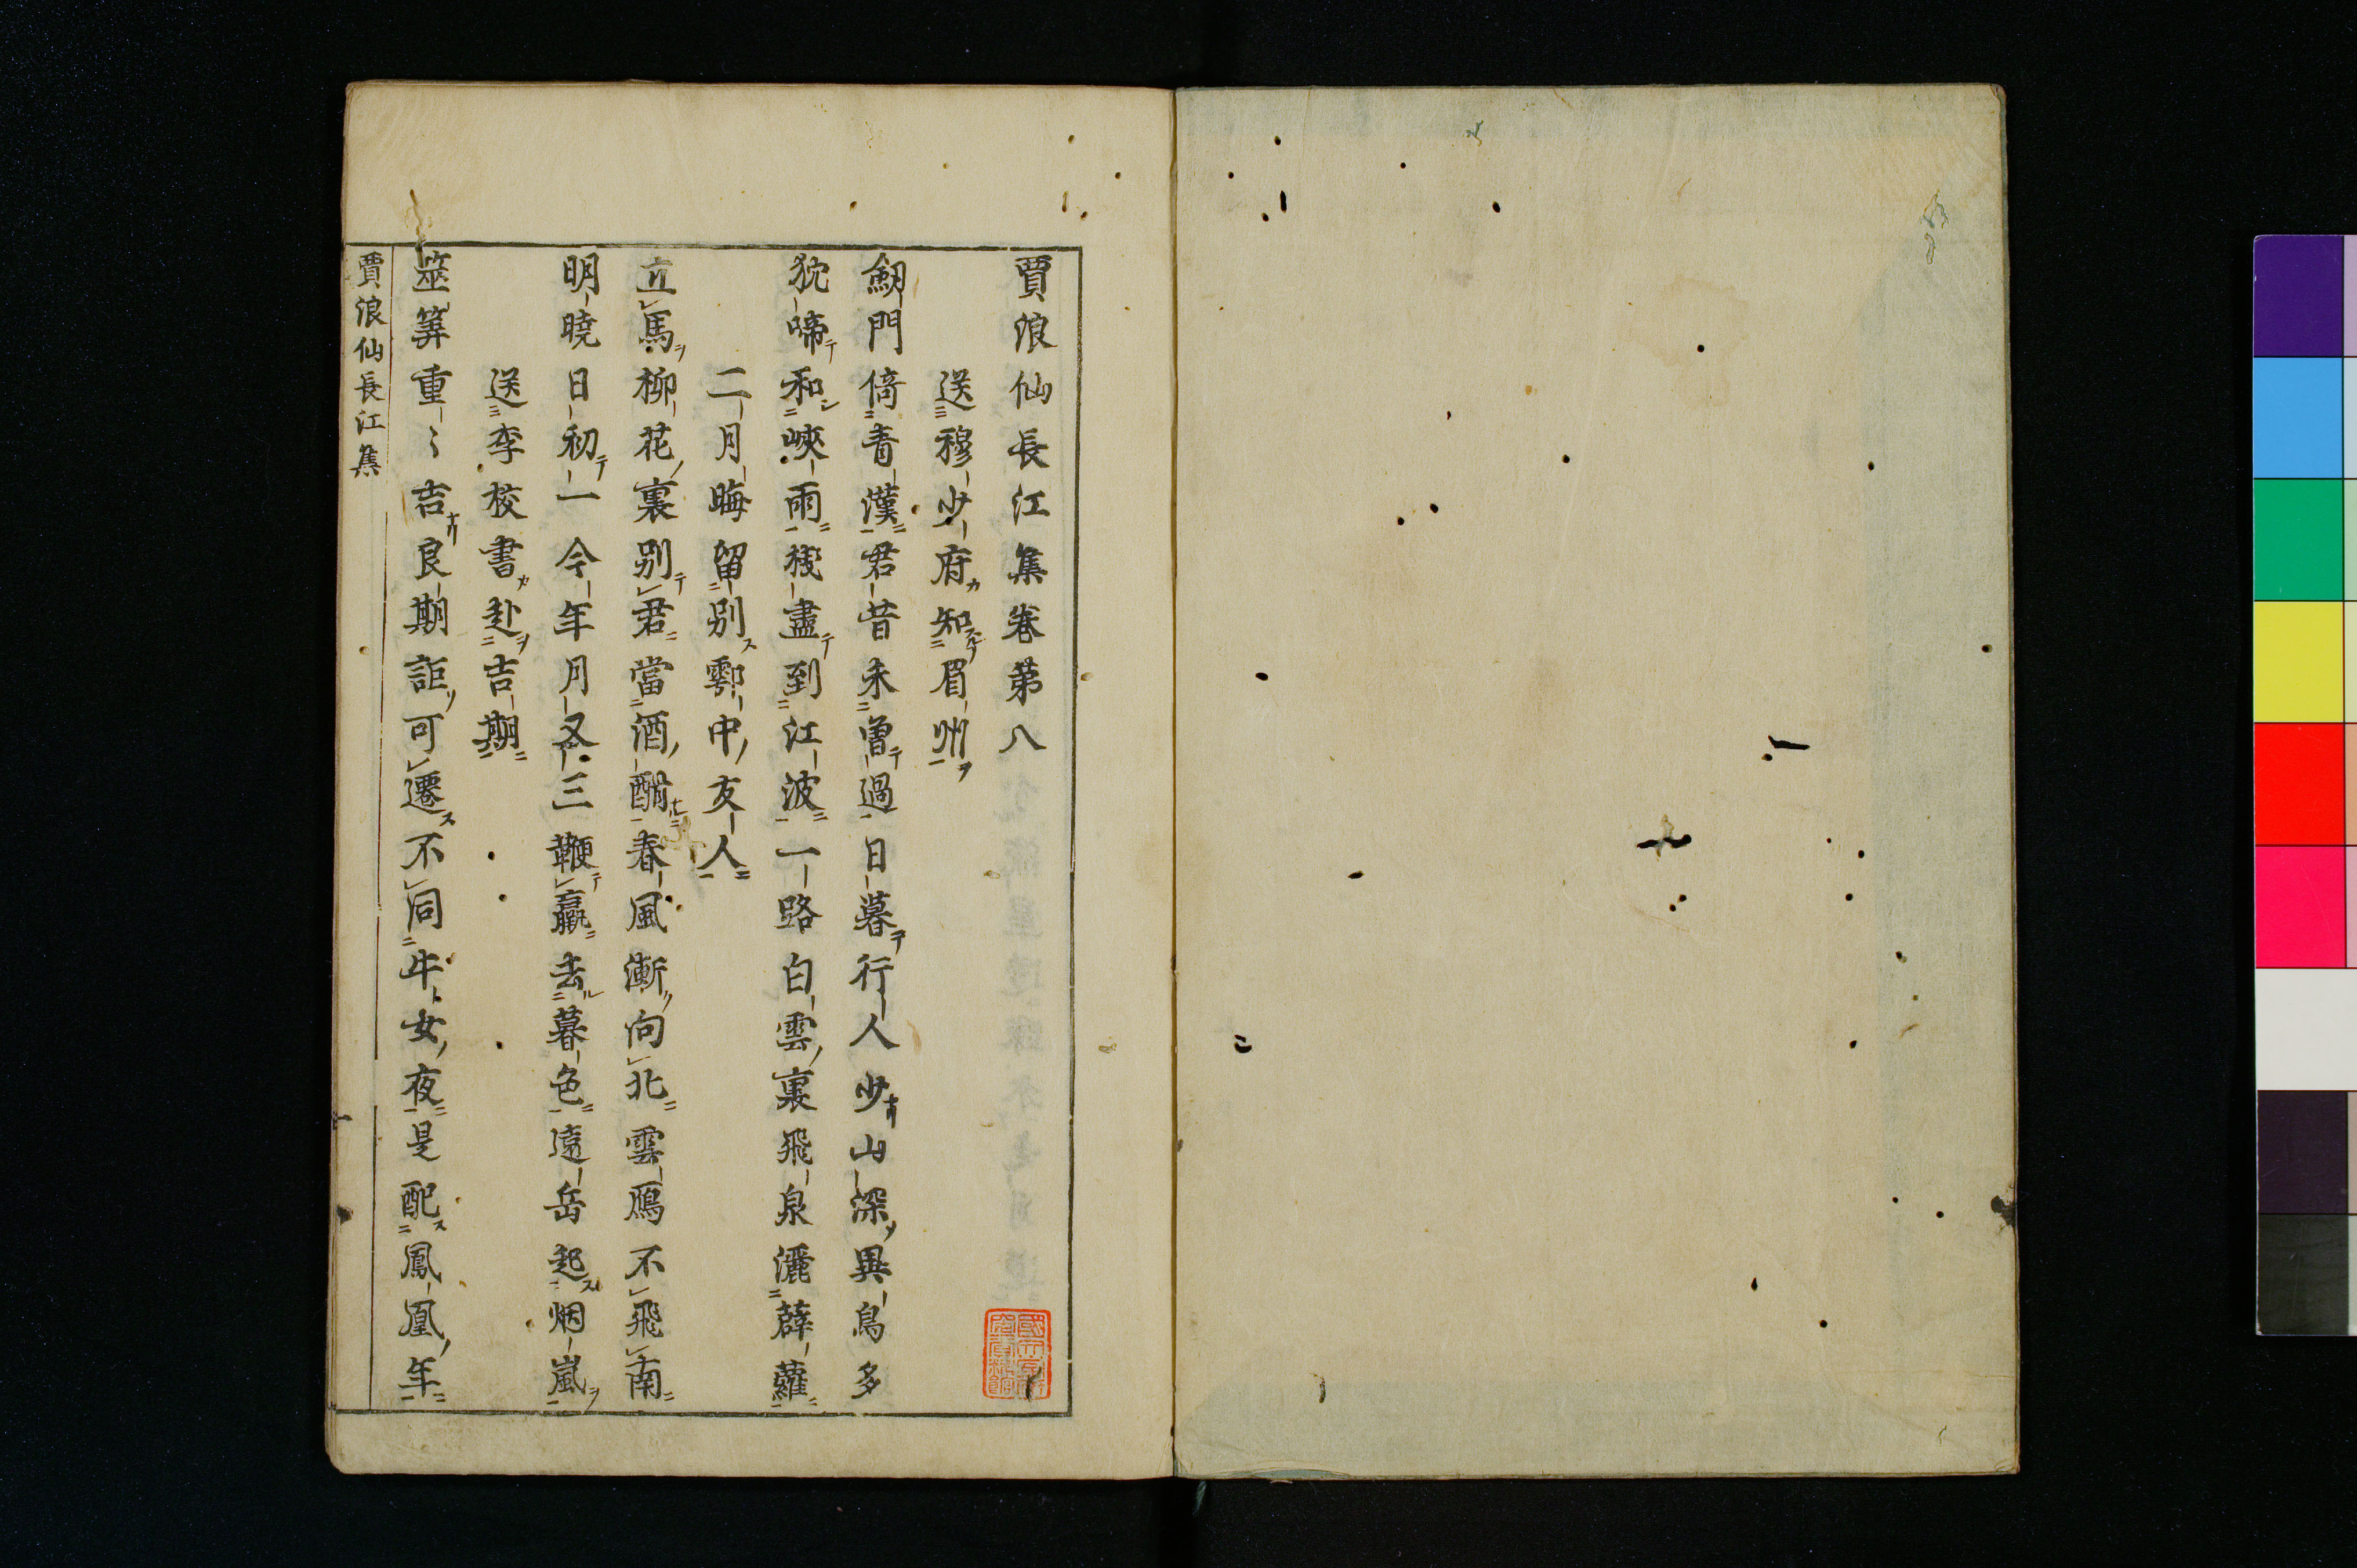 賈浪仙長江集卷第八
送穆少府知眉州
劒門倚青漢君昔未曽過日暮行人少山深異鳥多
狖啼和峽雨棧盡到江波一路白雲裏飛泉灑薜蘿
二月晦留別鄠中友人
立馬柳花裏別君當酒酣春風漸向北雲鴈不飛南
明曉日初一今年月又三鞭羸去暮色遠岳起烟嵐
送李校書赴吉期
筮筭重〻吉良期詎可遷不同牛女夜是配鳳凰年
賈浪仙長江集